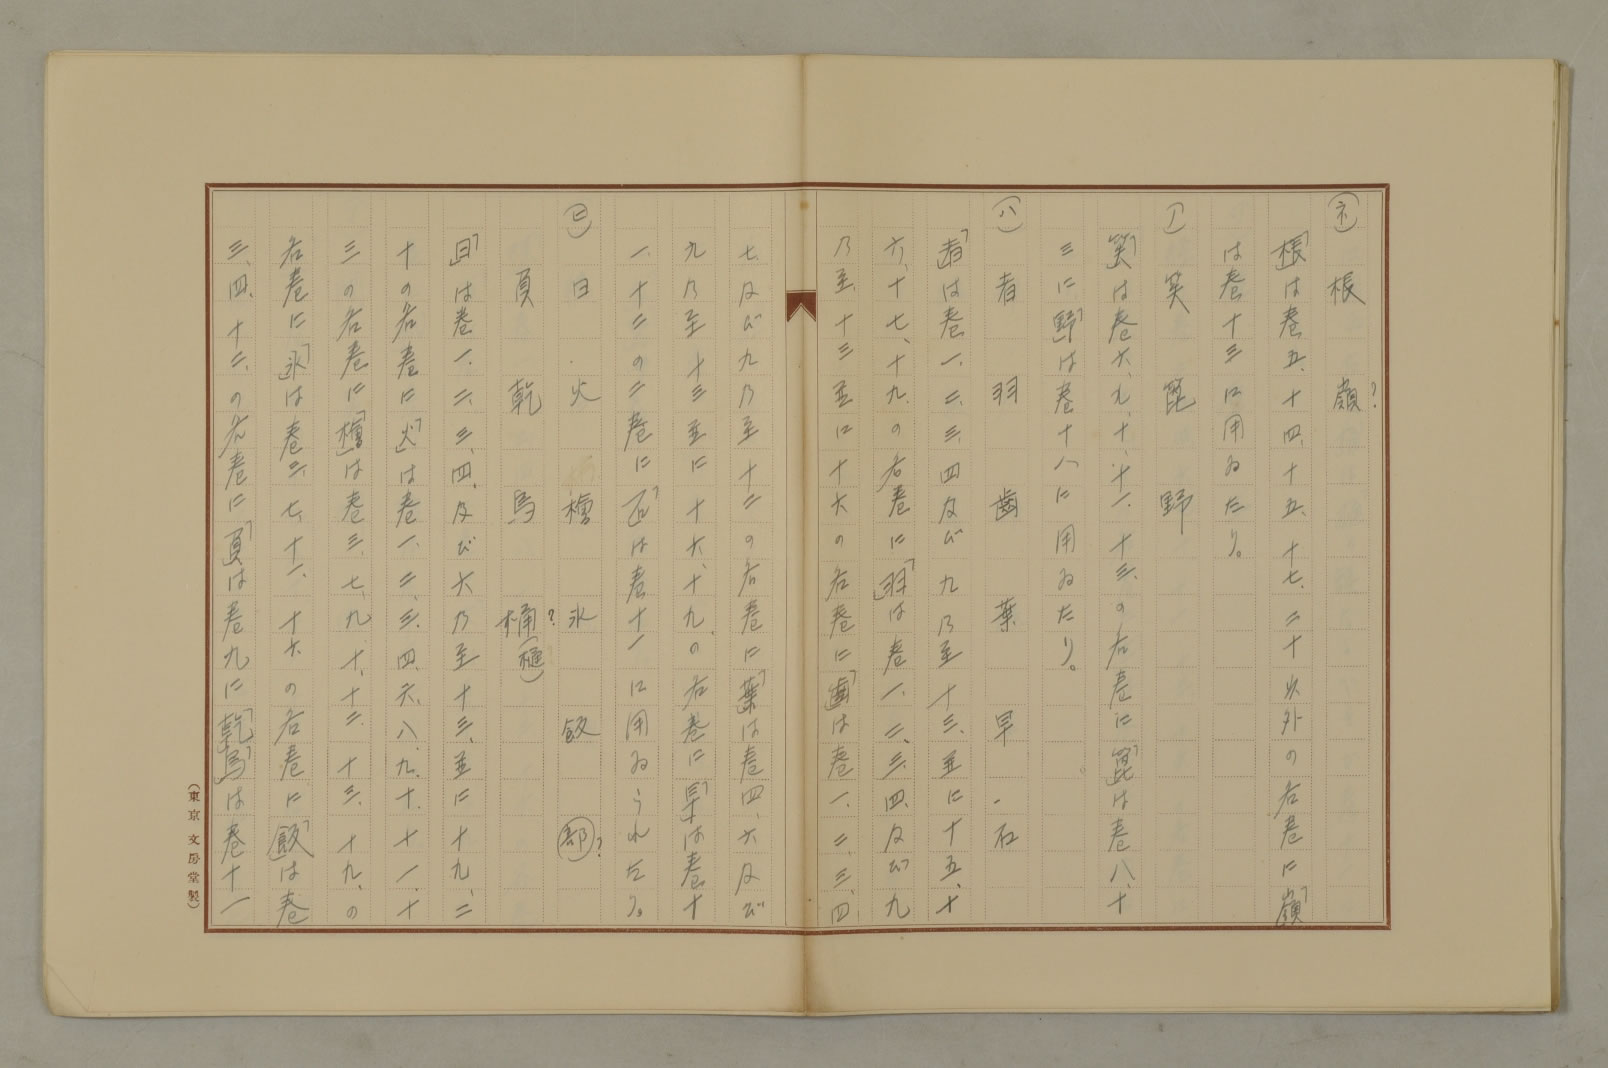 (ネ) 根 嶺?
「根」は巻五、十四、十五、十七、二十以外の各巻に「嶺」
は巻十三に用ゐたり。
(ノ) 笶 箆 野
「笶」は巻六、九、十、十一、十三、の各巻に「箆」は巻八、十
三に「野」は巻十八に用ゐたり。
(ハ) 者 羽 歯 葉 早 石
「者」は巻一、二、三、四及び九乃至十三、並に十五、十
六、十七、十九、の各巻に「羽」は巻一、二、三、四、及び九
乃至十三並に十六の各巻に「歯」は巻一、二、三、四、
七、及び九乃至十二の各巻に「葉」は巻四、六及び
九乃至十三並に十六、十九、の各巻に「早」は巻十
一、十二の二巻に「石」は巻十一に用ゐられたり。
(ヒ) 日 火 檜 氷 飯 部?
頁 乾 馬 桶?(樋)
「日」は巻一、二、三、四、及び六乃至十三、並に十九、二
十の各巻に「火」は巻一、二、三、四、六、八、九、十、十一、十
三の各巻に「檜」は巻三、七、九、十、十二、十三、十九、の
各巻に「氷」は巻二、七、十一、十六の各巻に「飯」は巻
三、四、十二、の各巻に「頁」は巻九に「乾」「馬」は巻十一
(東京 文房堂製)